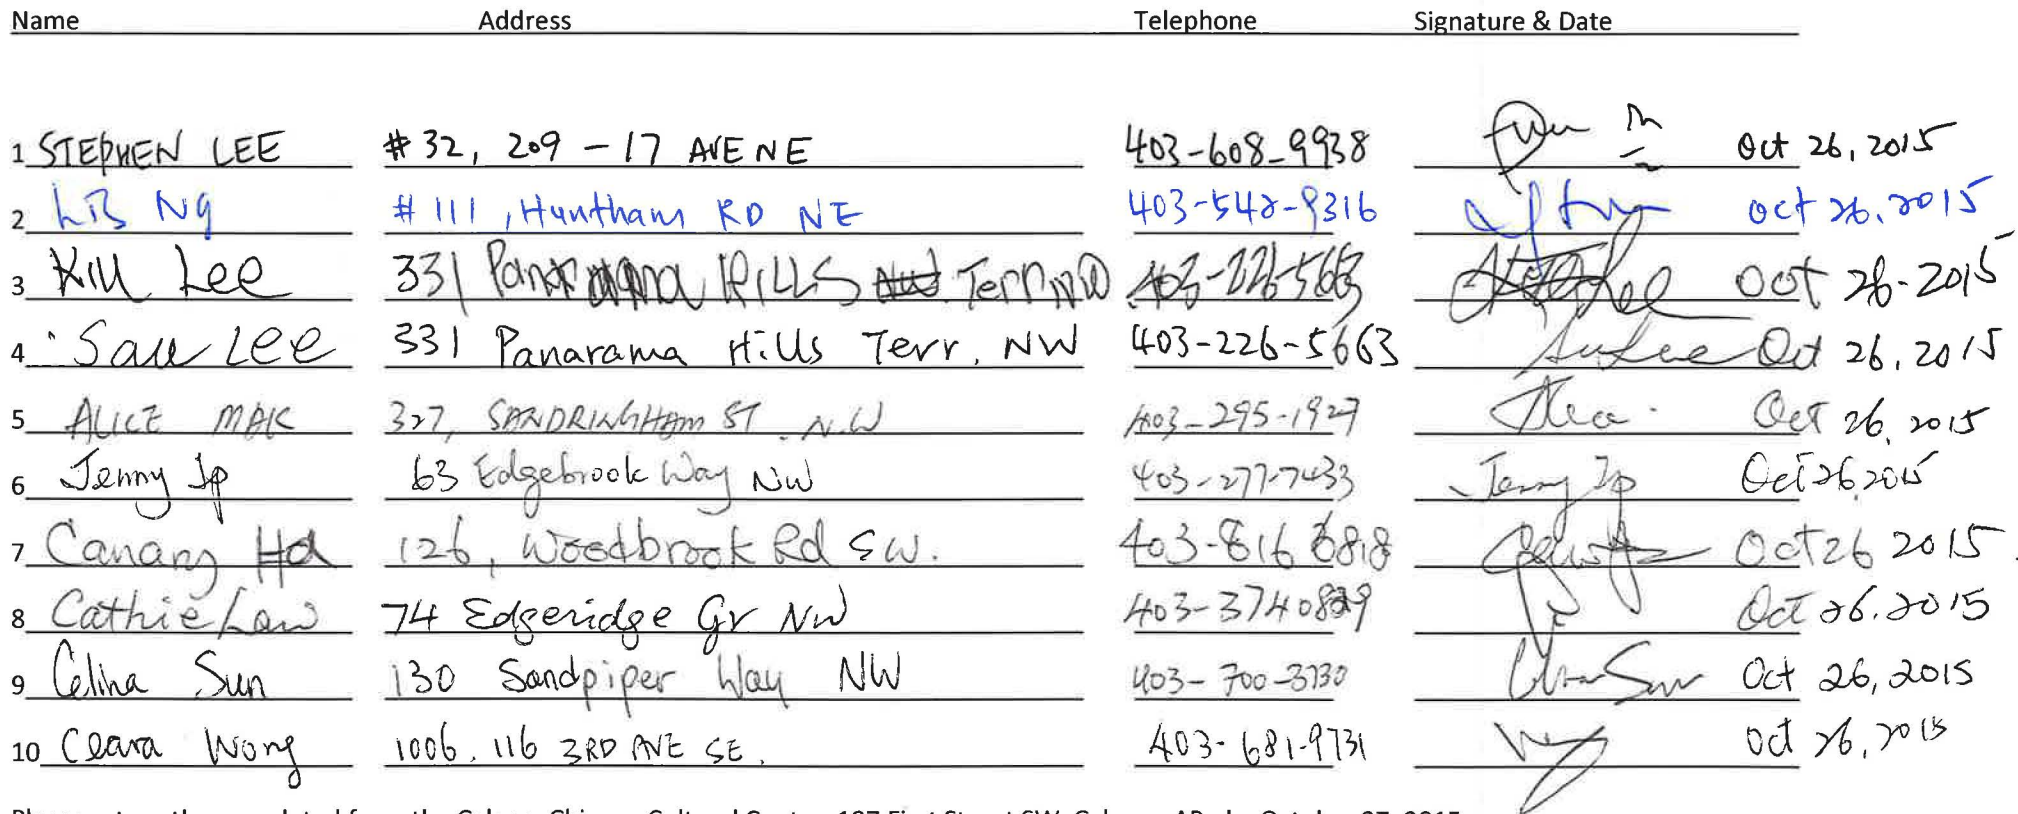 Name Address Telephone Signature & Date
1 STEPHEN LEE #32, 209 - 17 AVE NE 403-608-9938 Oct 26, 2015
2 Liz Ng #111, Huntham RD NE 403-542-9316 Oct 26, 2015
3 Kiu Lee 331 Panarama HILLS Terr NW 403-226-5663 Oct 26-2015
4 Sau Lee 331 Panarama Hills Terr. NW 403-226-5663 Oct 26, 2015
5 ALICE MAK 327, SANDRINGHAM ST. N.W 403-295-1927 Oct 26, 2015
6 Jenny Ip 63 Edgebrook Way NW 403-277-7433 Jenny Ip Oct 26 2015
7 Canary 126, Woodbrook Rd SW. 403-816 6818 Oct 26 2015.
8 Cathie Law 74 Edgeridge Gr NW 403-374 0829 Oct 26. 2015
9 Celina Sun 130 Sandpiper Way NW 403-700-3730 Oct 26, 2015
10 Ceara Wong 1006, 116 3RD AVE SE. 403-681-9731 Oct 26, 2015